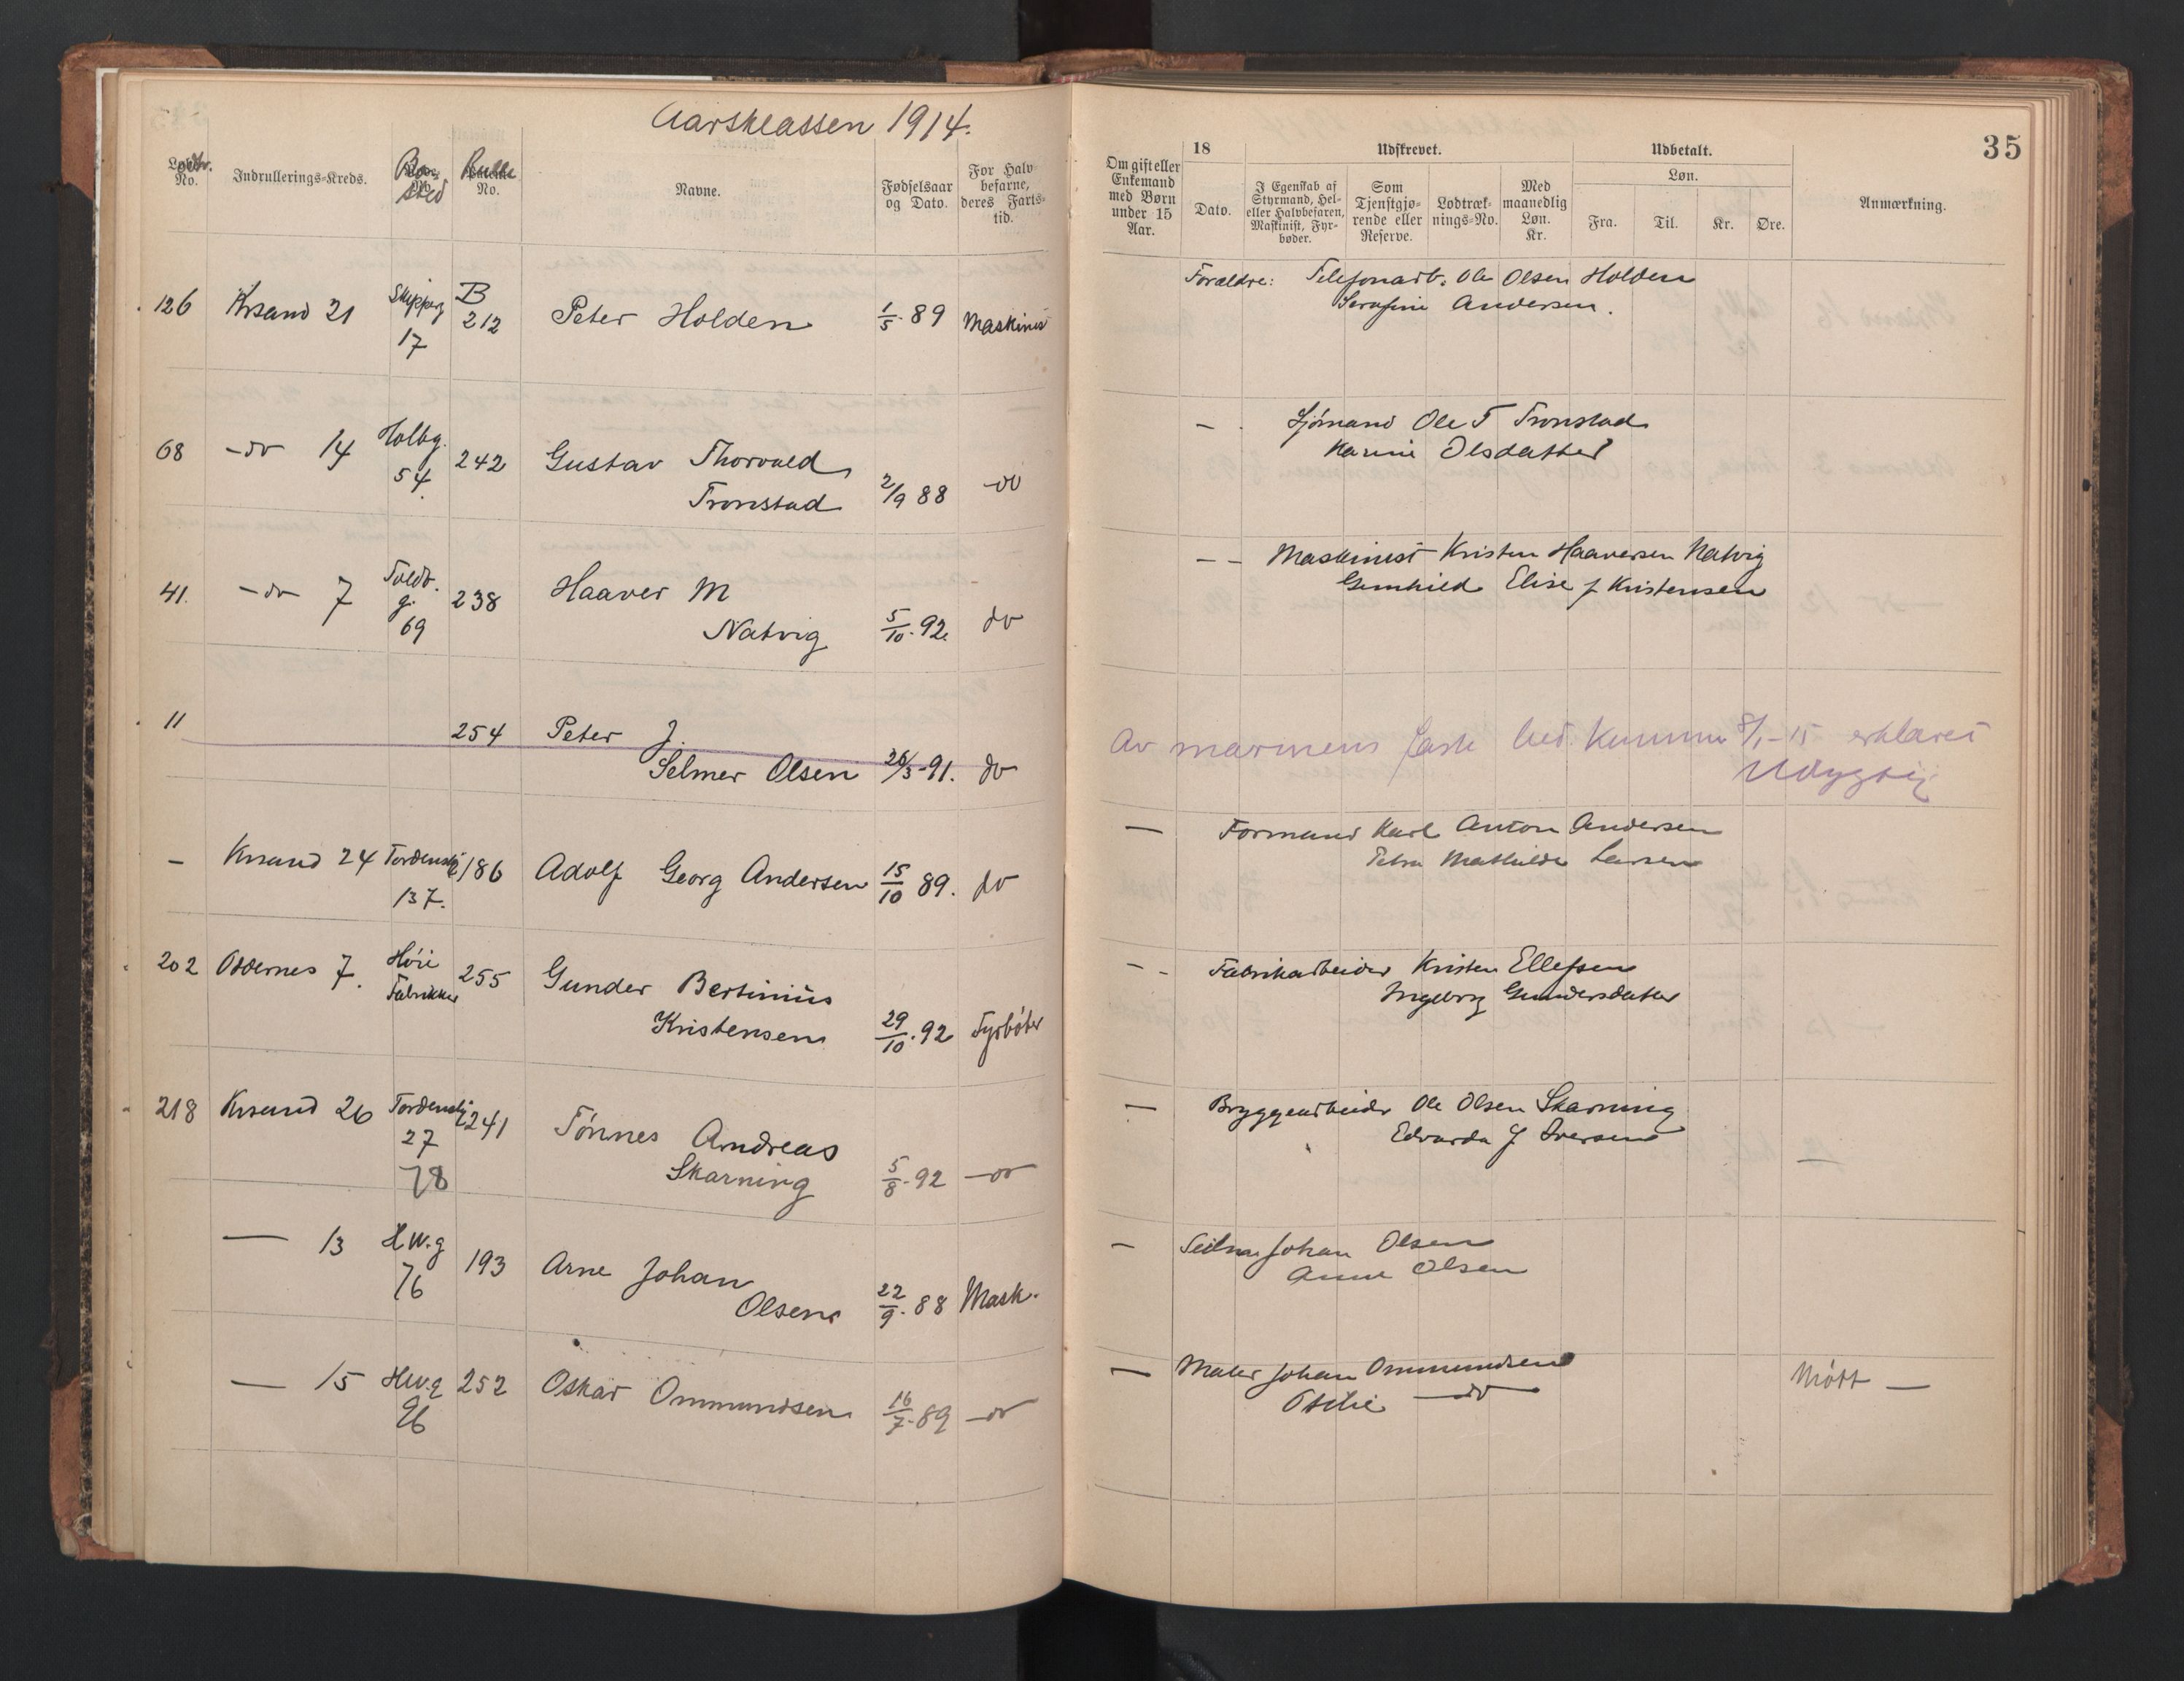 Aarsklassen 1914.
Lodtr. No.
Indrullerings-Kreds.
Bo-sted
Rulle No.
Navne.
Fødselsaar og Dato.
For Halvbefarne, deres Fartstid.
126 Krsand 21 Skipperg 17 B 212 Peter Holden 1/5.89 Maskinist
68 -do- 14 Holbg. 54. 242 Gustav Thorvald
Tronstad 2/9 88 -do-
41. -do- 7 Toldb.g. 69 238 Haaver M
Natvig 5/10.92. do
11 254 Peter J.
Selmer Olsen 26/3-91. do
- Krsand 24 Tordenskj. 137. 186 Adolf Georg Andersen 15/10 89. do
202 Oddernes 7. Høie Fabrikker 255 Gunder Bertinius
Kristensen 29/10.92 Fyrbøter
218 Krsand 26 Tordenskj. 27 78 241 Tønnes Andreas
Skarning 5/8.92 -do-
— 13 H.W.g 76 193 Arne Johan
Olsen 22/9.88 Mask.
— 15 H.W.g 96 252 Oskar Ommundsen 16/7.89 -do-
35
Om gift eller Enkemand med Børn under 15 Aar.
18
Dato.
Udskrevet.
I Egenskab af Styrmand, Hel- eller Halvbefaren, Maskinist, Fyrbøder.
Som Tjenstgjørende eller Reserve.
Lodtræknings-No.
Med maanedlig Løn. Kr.
Udbetalt.
Løn.
Fra.
Til.
Kr.
Øre.
Anmærkning.
Forældre: Telefonarb. Ole Olsen Holden
Serafine Andersen.
- Sjømand Ole T Tronstad
Karine Olsdatter
- - Maskinist Kristen Haaversen Natvig
Gunhild Elise f Kristensen
Av marinens faste 8/1-15 erklæret
Udygtig
— Formand Karl Anton Andersen
Petra Mathilde Larsen
- - Fabrikarbeider Kristen Ellefsen
Ingeborg Gundersdatter
— Bryggearbeider Ole Olsen Skarning
Edvarda f Iversen
—
- Johan Olsen
Anne Olsen
— Maler Johan Ommundsen
Otilie —do— Møtt —